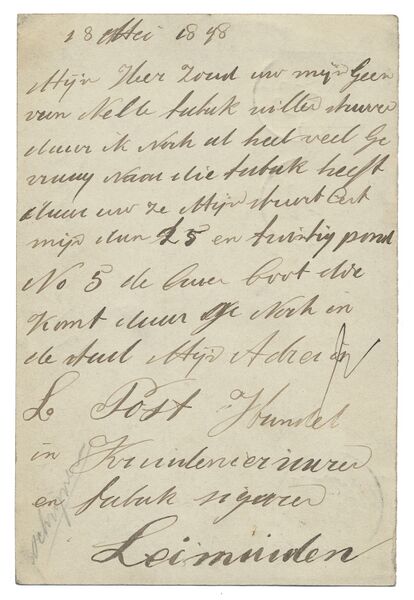 18 Mei 1898
Mijn Heer Zoud uw mijn Geen
van Nelle tabak willen sturen
daar ik Noch al heel veel Ge
vraag Naar die tabak heeft
daar uw ze Mijn stuurt
mijn dan 25 en twintig pond
No 5 de boot die
Komt daar Noch in
de stad Mijn Adres is
L. Post Handel
in Kruidenierwaren
en tabak sigaren
Leimuiden